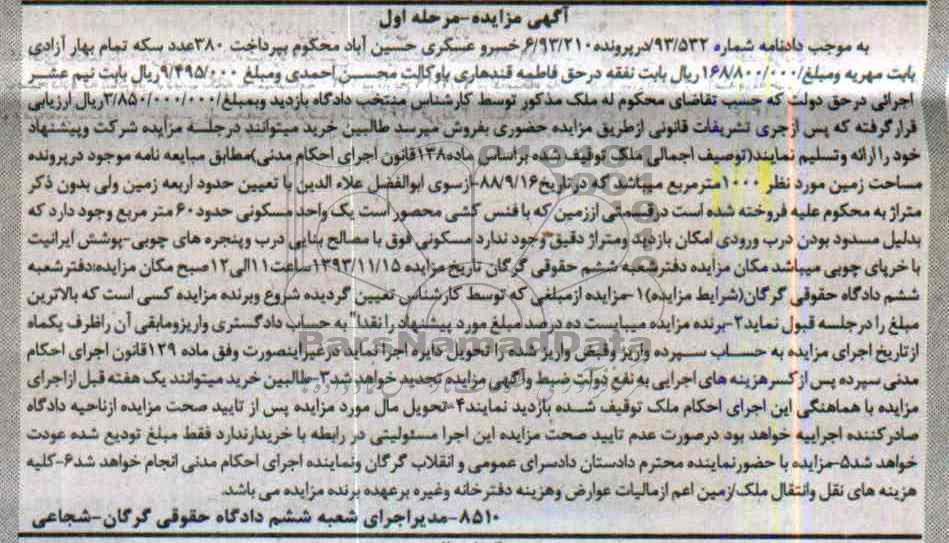 آگهی مزایده-مرحله اول
به موجب دادنامه شماره ۹۳/۵۳۲درپرونده۶/۹۳/۲۱۰خسرو عسکری حسین آباد محکوم بپرداخت ۳۸۰عدد سکه تمام بهار آزادی
بابت مهریه ومبلغ/۱۶۸/۸۰۰/۰۰۰ریال بابت نفقه درحق فاطمه قندهاری باوکالت محسن احمدی ومبلغ ۹/۴۹۵/۰۰۰ریال بابت نیم عشر
اجرائی درحق دولت که حسب تقاضای محکوم له ملک مذکور توسط کارشناس منتخب دادگاه بازدید وبمبلغ/۳/۸۵۰/۰۰۰/۰۰۰ریال ارزیابی
قرارگرفته که پس ازجری تشریفات قانونی ازطریق مزایده حضوری بفروش میرسد طالبین خرید میتوانند درجلسه مزایده شرکت وپیشنهاد
خود را ارائه وتسلیم نمایند(توصیف اجمالی ملک توقیف شده براساس ماده۱۳۸قانون اجرای احکام مدنی)مطابق مبایعه نامه موجود درپرونده
مساحت زمین مورد نظر ۱۰۰۰مترمربع میباشد که درتاریخ۸۸/۹/۱۶-ازسوی ابوالفضل علاء الدین با تعیین حدود اربعه زمین ولی بدون ذکر
متراژ به محکوم علیه فروخته شده است درقسمتی اززمین که با فنس کشی محصور است یک واحد مسکونی حدود۶۰ متر مربع وجود دارد که
بدلیل مسدود بودن درب ورودی امکان بازدید ومتراژ دقیق وجود ندارد مسکونی فوق با مصالح بنایی درب وپنجره های چوبی-پوشش ایرانیت
با خرپای چوبی میباشد مکان مزایده دفترشعبه ششم حقوقی گرگان تاریخ مزایده ۱۳۹۳/۱۱/۱۵ساعت۱۱الی۱۲صبح مکان مزایده:دفترشعبه
ششم دادگاه حقوقی گرگان(شرایط مزایده)۱-مزایده ازمبلغی که توسط کارشناس تعیین گردیده شروع وبرنده مزایده کسی است که بالاترین
مبلغ را درجلسه قبول نماید۲-برنده مزایده میبایست ده درصد مبلغ مورد پیشنهاد را نقدا" به حساب دادگستری واریزومابقی آن راظرف یکماه
ازتاریخ اجرای مزایده به حساب سپرده واریز وقبض واریز شده را تحویل دایره اجرا نماید درغیراینصورت وفق ماده ۱۲۹قانون اجرای احکام
مدنی سپرده پس ازکسرهزینه های اجرایی به نفع دولت ضبط وآگهی مزایده تجدید خواهد شد۳-طالبین خرید میتوانند یک هفته قبل ازاجرای
مزایده با هماهنگی این اجرای احکام ملک توقیف شده بازدید نمایند۴-تحویل مال مورد مزایده پس از تایید صحت مزایده ازناحیه دادگاه
صادرکننده اجراییه خواهد بود درصورت عدم تایید صحت مزایده این اجرا مسئولیتی در رابطه با خریدارندارد فقط مبلغ تودیع شده عودت
خواهد شد۵-مزایده با حضورنماینده محترم دادستان دادسرای عمومی و انقلاب گرگان ونماینده اجرای احکام مدنی انجام خواهد شد۶-کلیه
هزینه های نقل وانتقال ملک/زمین اعم ازمالیات عوارض وهزینه دفترخانه وغیره برعهده برنده مزایده می باشد.
۸۵۱۰-مدیراجرای شعبه ششم دادگاه حقوقی گرگان-شجاعی
ParsNamadData